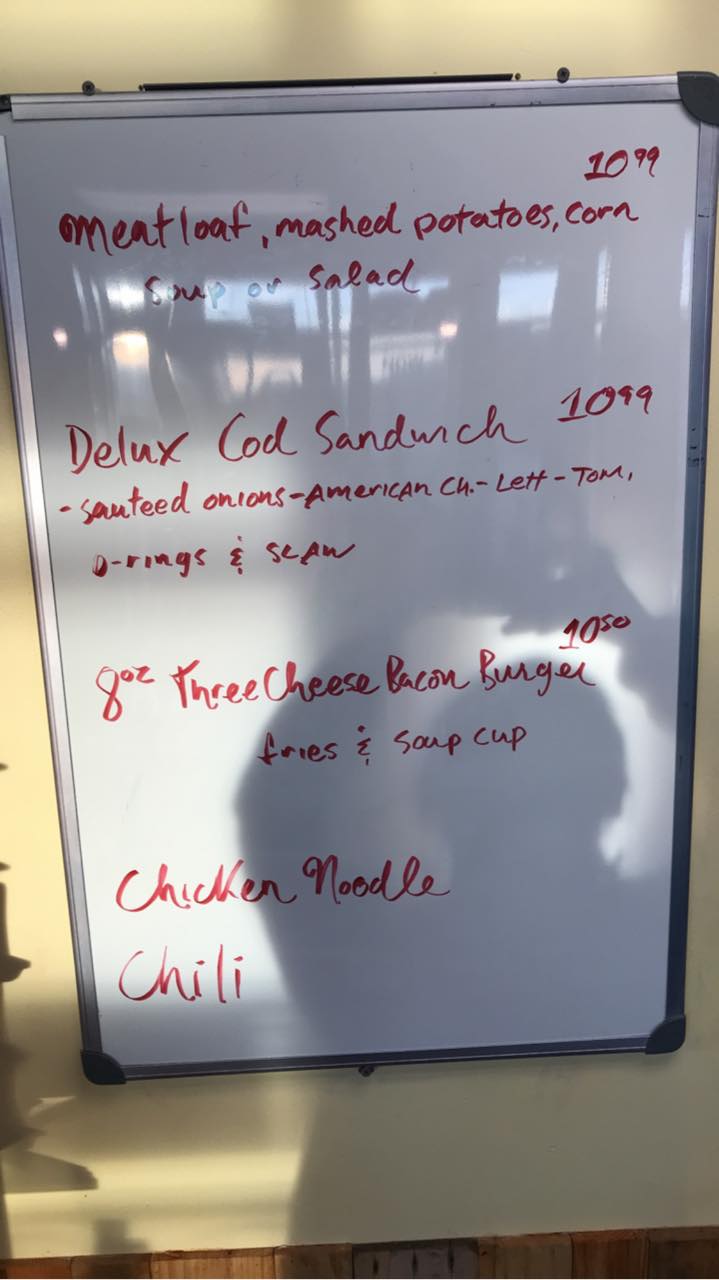 10 99
meatloaf, mashed potatoes, corn
soup or salad
Delux Cod Sandwich 10 99
- sauteed onions - American Ch. - Lett - Tom,
o-rings & slaw
10 50
8 oz Three Cheese Bacon Burger
fries & soup cup
Chicken Noodle
Chili